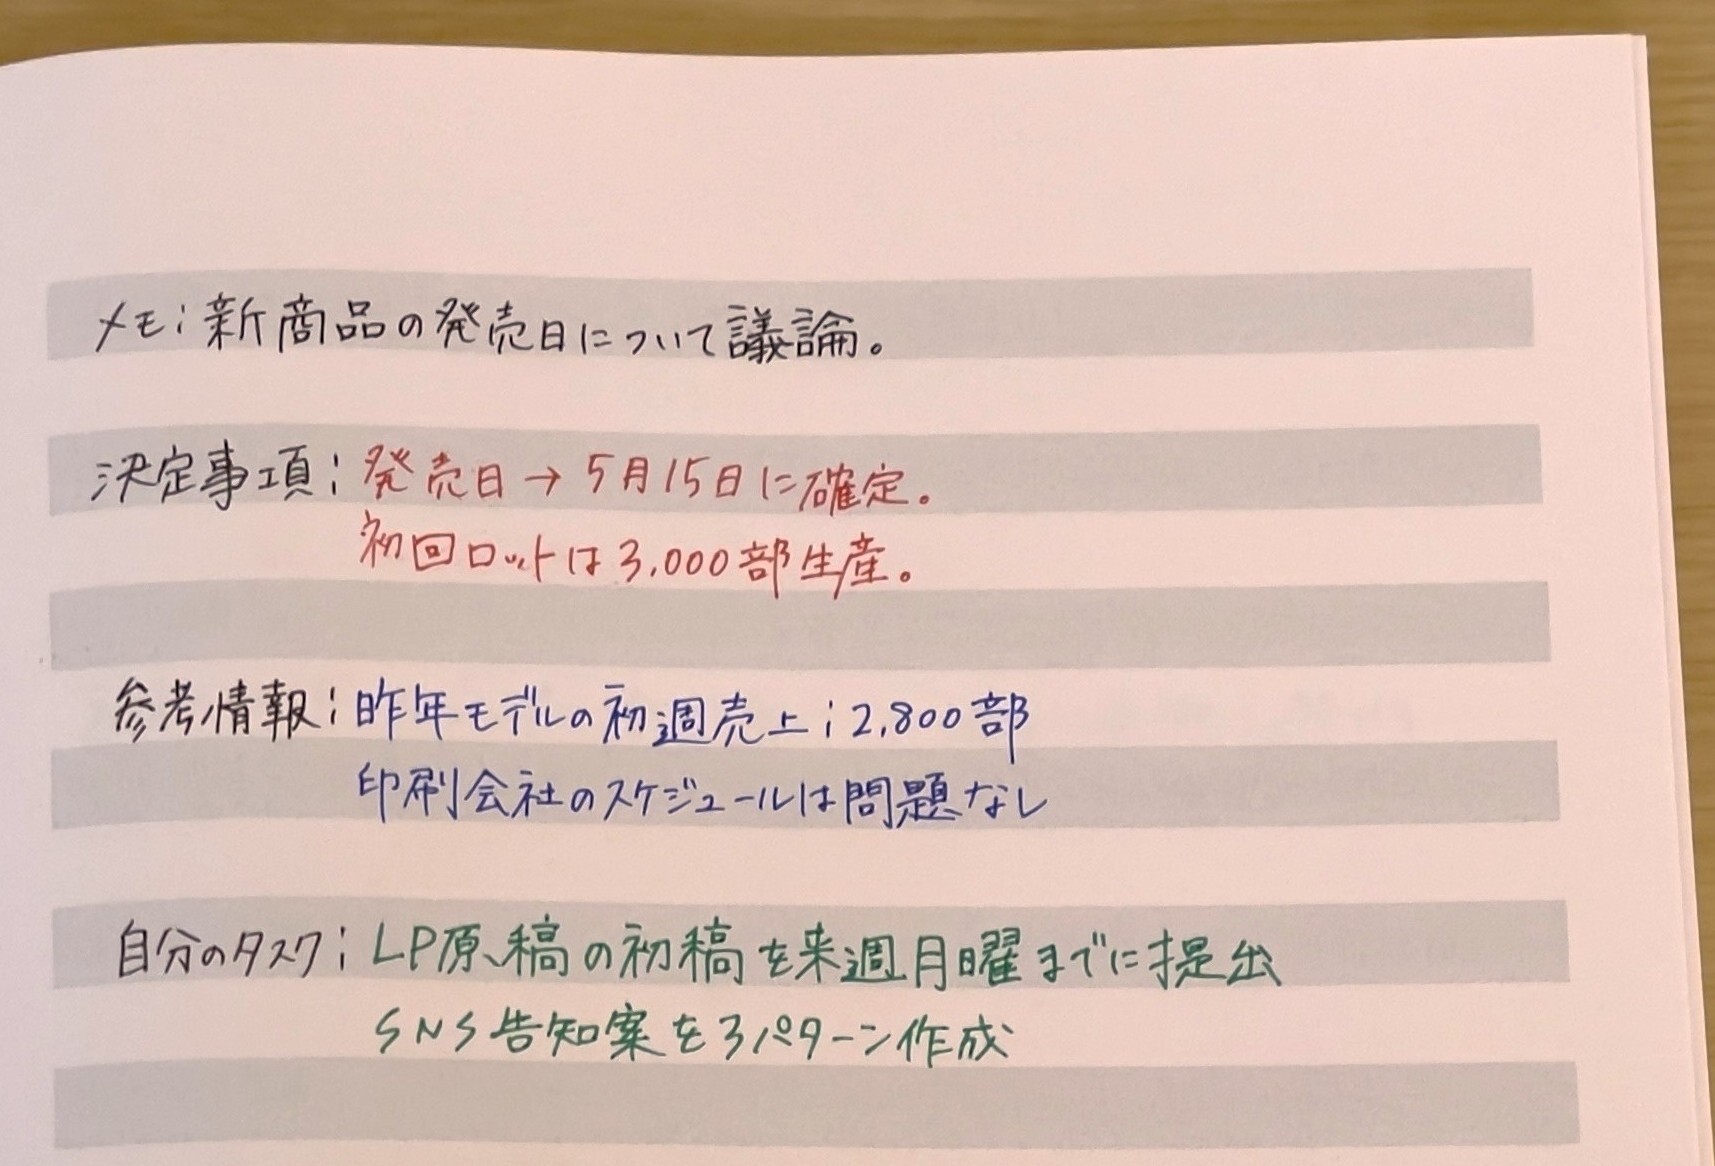 メモ:新商品の発売日について議論。
決定事項:発売日→5月15日に確定。
初回ロットは3,000部生産。
参考情報:昨年モデルの初週売上:2,800部
印刷会社のスケジュールは問題なし
自分のタスク:LP原稿の初稿を来週月曜までに提出
SNS告知案を3パターン作成